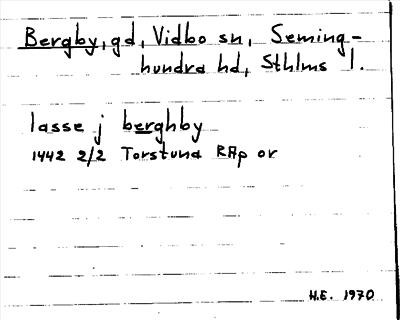 Bergby, gd, Vidbo sn, Seming-
hundra hd, Sthlms l.
lasse j berghby
1442 2/2 Torstuna RAp or
H.E. 1970